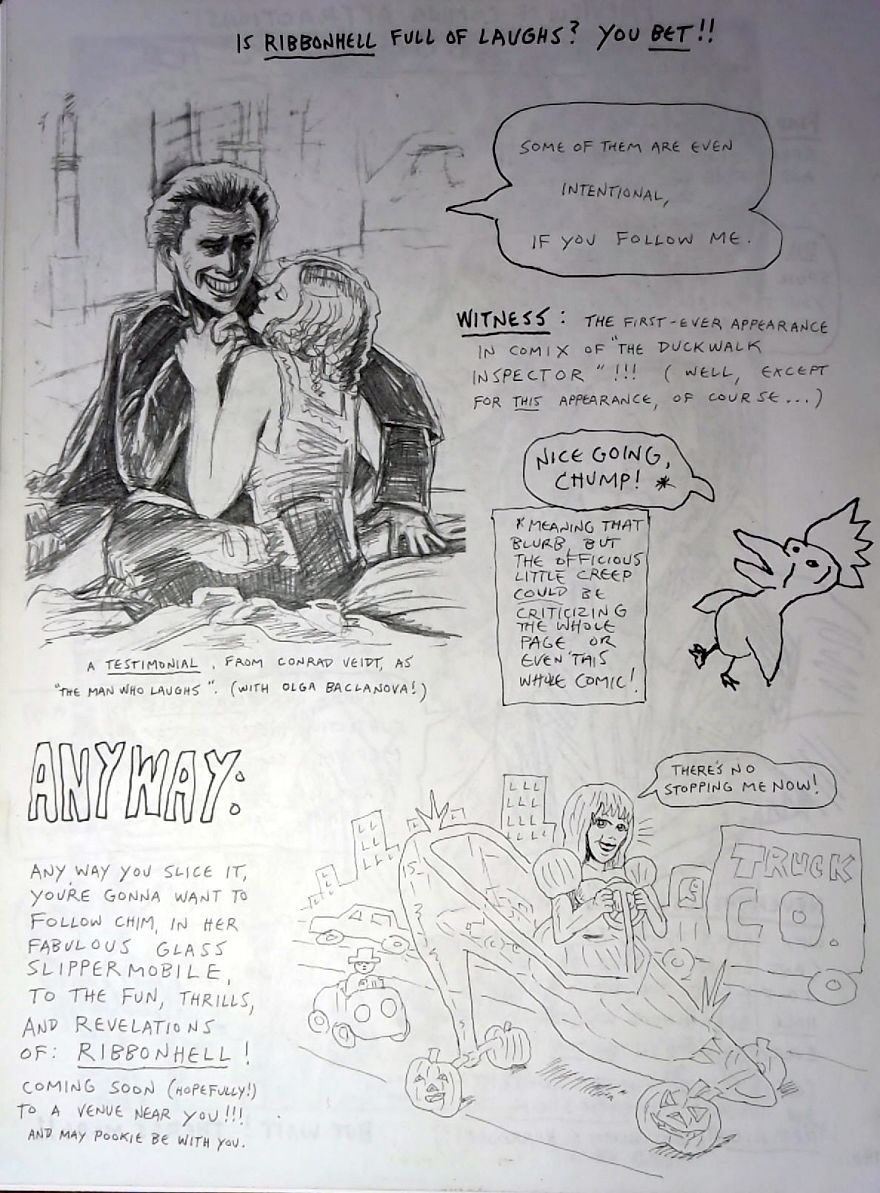 IS RIBBONHELL FULL OF LAUGHS? YOU BET!!
SOME OF THEM ARE EVEN
INTENTIONAL,
IF YOU FOLLOW ME.
WITNESS: THE FIRST-EVER APPEARANCE
IN COMIX OF "THE DUCKWALK
INSPECTOR"!!! (WELL, EXCEPT
FOR THIS APPEARANCE, OF COURSE...)
NICE GOING,
CHUMP! *
* MEANING THAT
BLURB, BUT
THE OFFICIOUS
LITTLE CREEP
COULD BE
CRITICIZING
THE WHOLE
PAGE OR
EVEN THIS
WHOLE COMIC!
A TESTIMONIAL, FROM CONRAD VEIDT, AS
"THE MAN WHO LAUGHS". (WITH OLGA BACLANOVA!)
ANYWAY:
ANY WAY YOU SLICE IT,
YOU'RE GONNA WANT TO
FOLLOW CHIM, IN HER
FABULOUS GLASS
SLIPPERMOBILE,
TO THE FUN, THRILLS,
AND REVELATIONS
OF: RIBBONHELL!
COMING SOON (HOPEFULLY!)
TO A VENUE NEAR YOU!!!
AND MAY POOKIE BE WITH YOU.
THERE'S NO
STOPPING ME NOW!
TRUCK
CO.